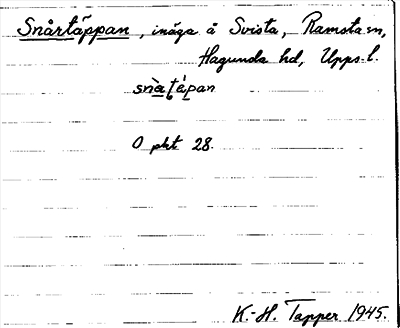 Snårtäppan, inäga å Svista, Ramsta sn,
Hagunda hd, Upps. l.
snàtápan
O pkt 28.
K.-H. Tapper 1945.